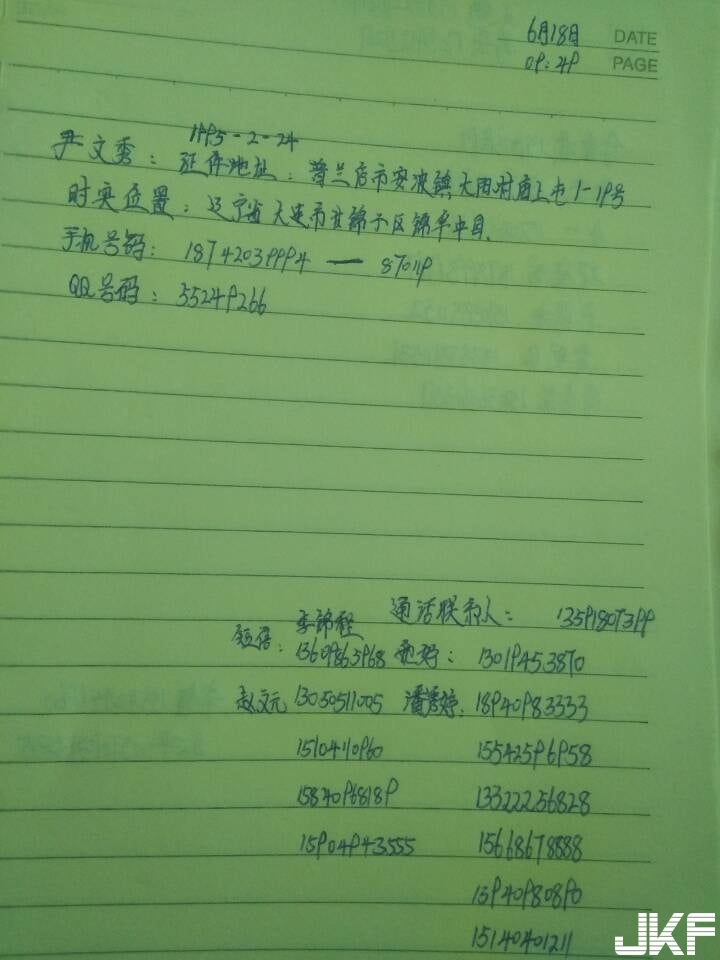 6月18日 DATE
09:49 PAGE
1995-2-24
尹文秀：证件地址：普兰店市安波镇大田村庙上屯1-19号
时实位置：辽宁省大连市甘井子区锦华中
手机号码：18742039994 — 87019
QQ号码：55249266
通话联系人：13591807399
李锦程
短信：13609865968 13019453870
赵文元 13050511005 潘秀婷：18940983333
15104110960 15542596958
15840968189 13322256828
15904943555 15668678888
13940980890
15140401211
JKF